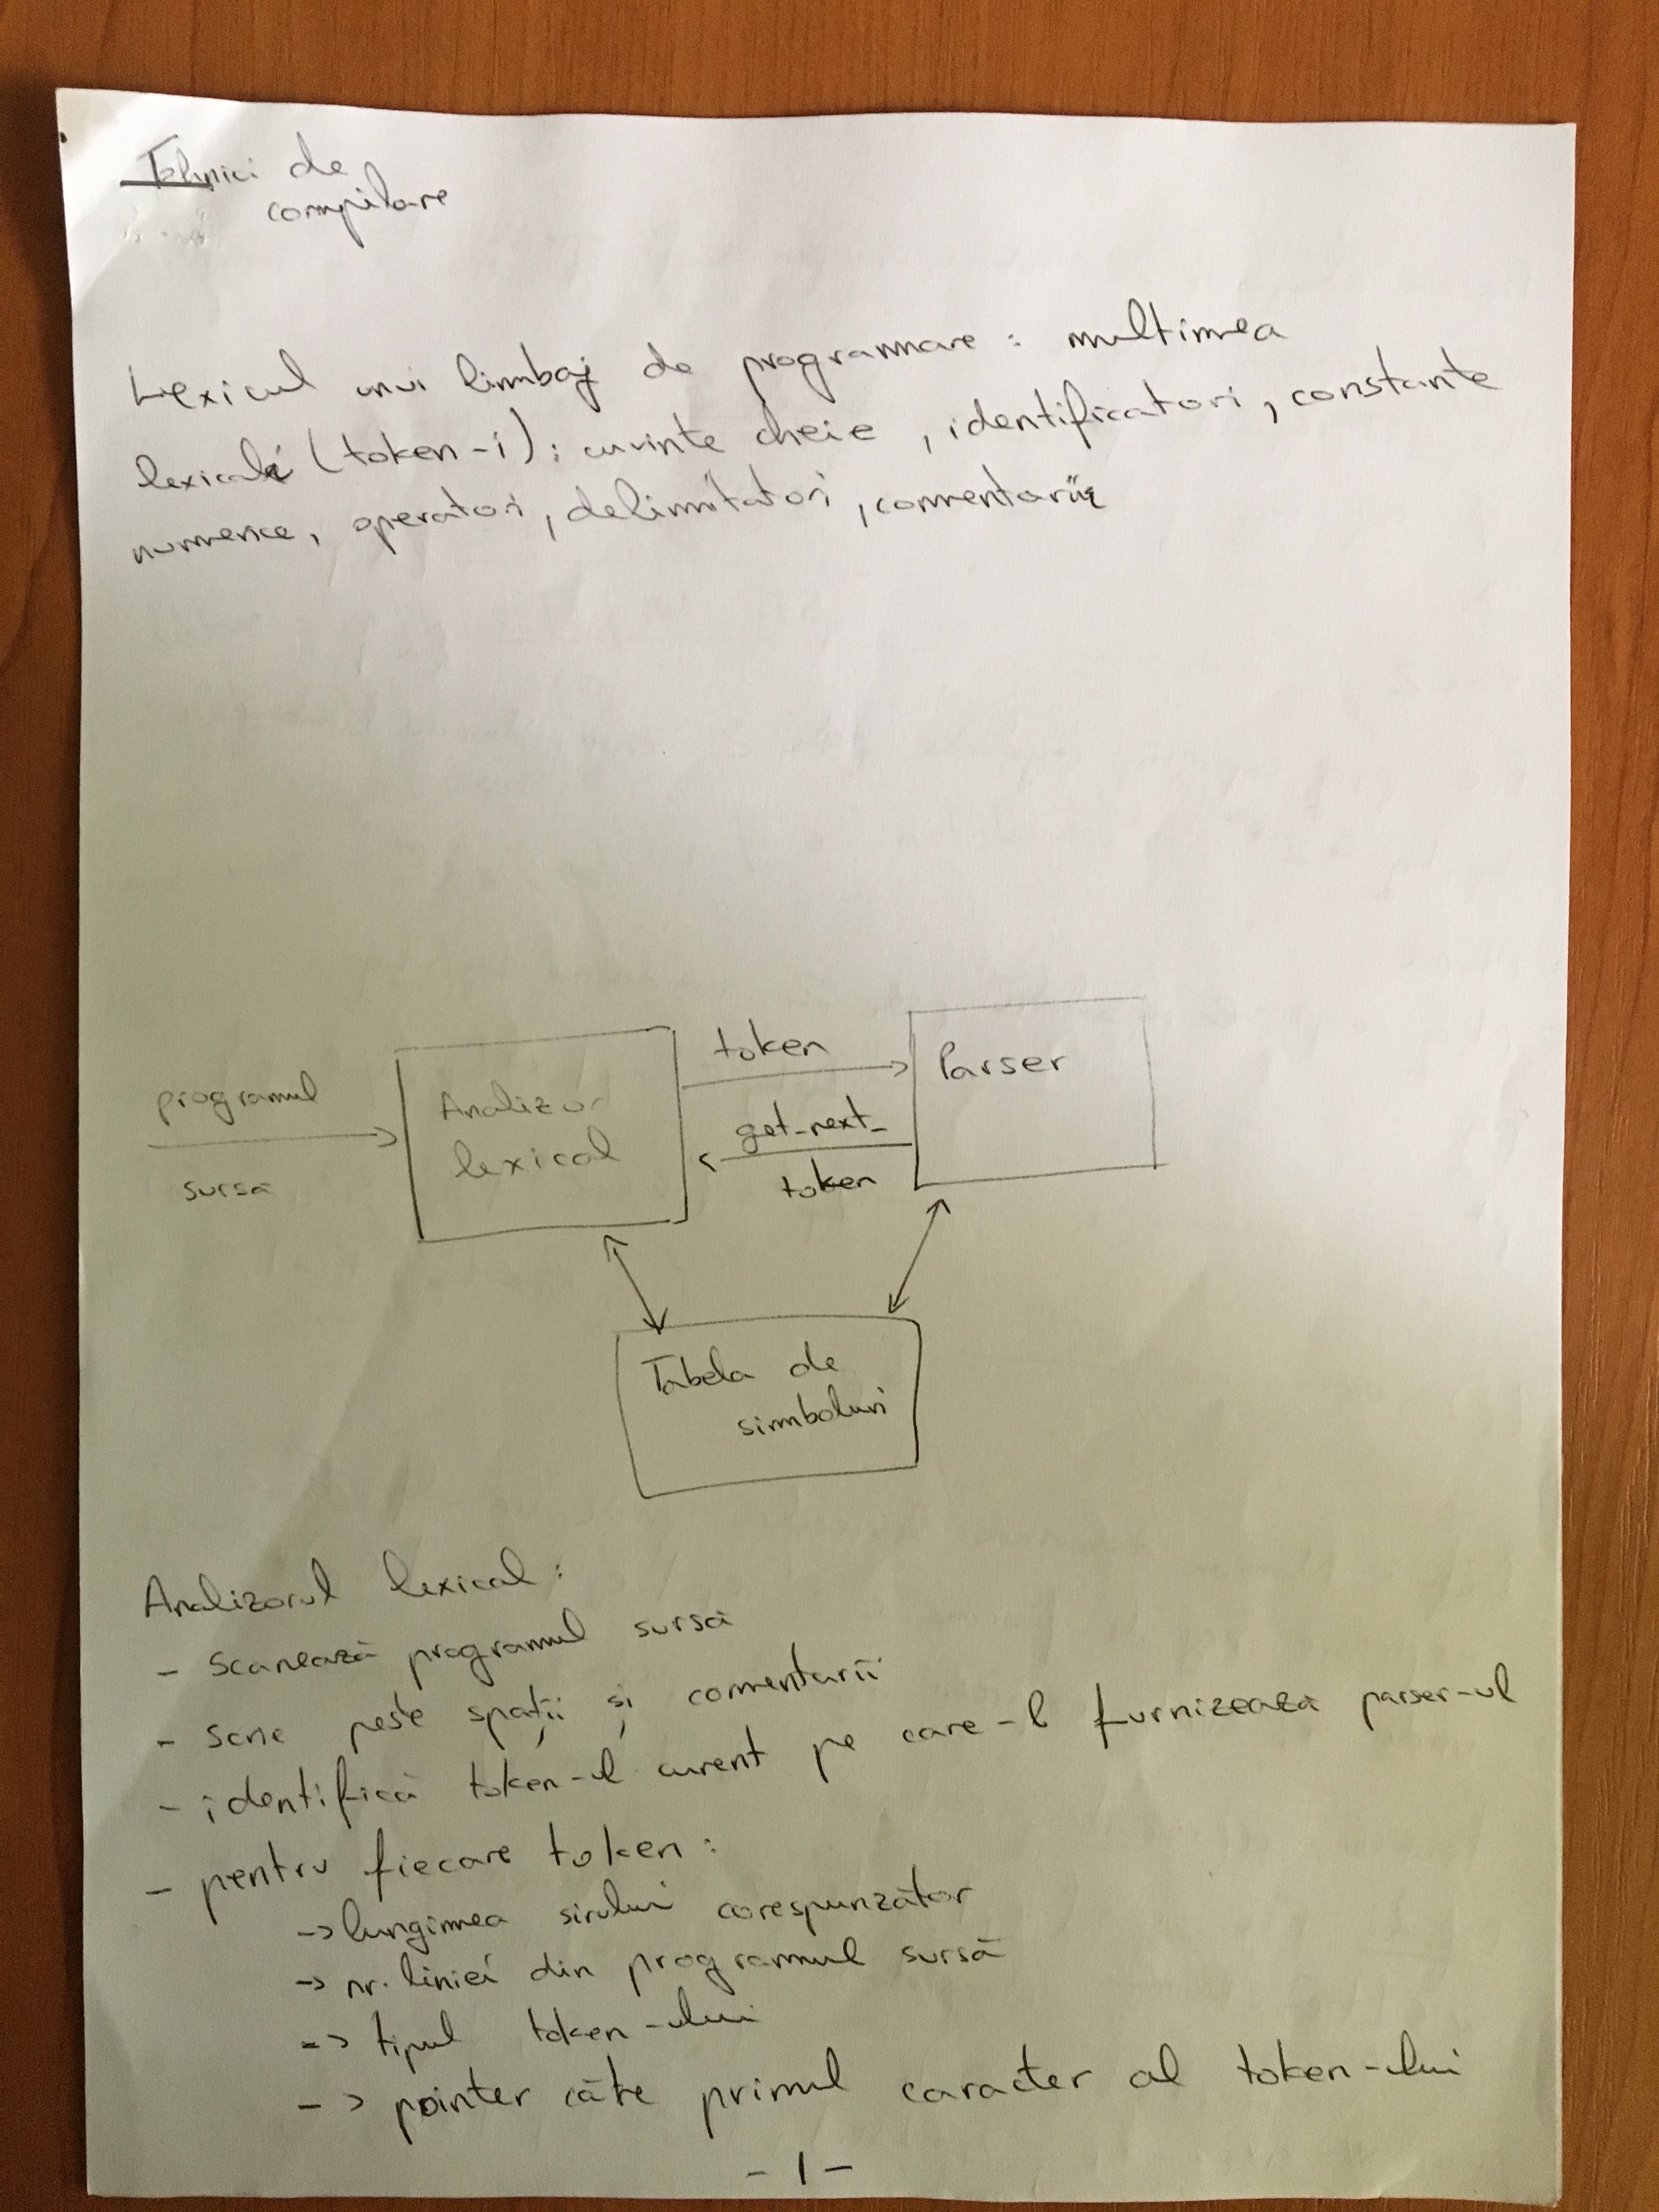 Tehnici de
compilare
Lexicul unui limbaj de programare : multimea
lexicală (token-i) : cuvinte cheie , identificatori , constante
numerice, operatori , delimitatori , comentarii
programul
sursă
Analizor
lexical
token
get_next_
token
Parser
Tabela de
simboluri
Analizorul lexical :
- Scanează programul sursă
- Scrie peste spații și comentarii
- identifică token-ul curent pe care-l furnizează parser-ul
- pentru fiecare token :
-> lungimea sirului corespunzător
-> nr. liniei din programul sursă
-> tipul token-ului
-> pointer căte primul caracter al token-ului
- 1 -